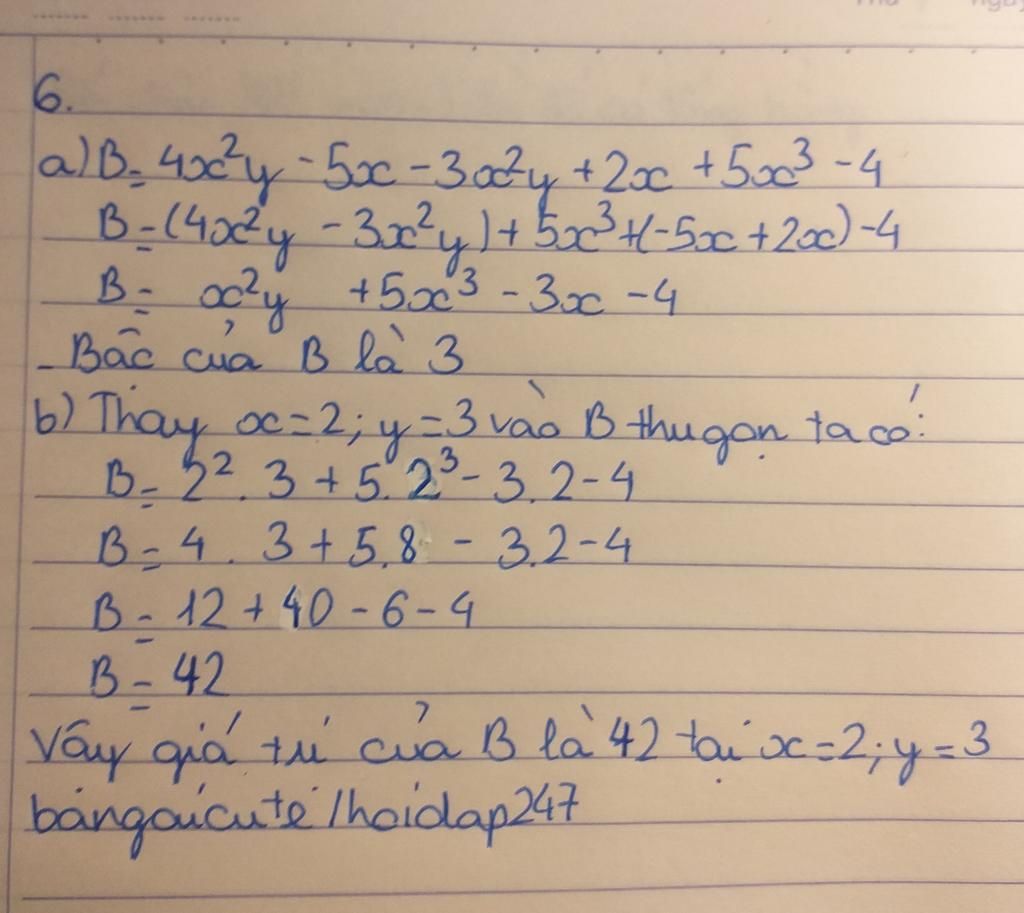 6.
a) B = 4x²y - 5x - 3x²y + 2x + 5x³ - 4
B = (4x²y - 3x²y) + 5x³ + (-5x + 2x) - 4
B = x²y + 5x³ - 3x - 4
- Bậc của B là 3
b) Thay x = 2; y = 3 vào B thu gọn ta có:
B = 2² . 3 + 5.2³ - 3.2 - 4
B = 4 . 3 + 5.8 - 3.2 - 4
B = 12 + 40 - 6 - 4
B = 42
Vậy giá trị của B là 42 tại x = 2; y = 3
bangaicute/hoidap247